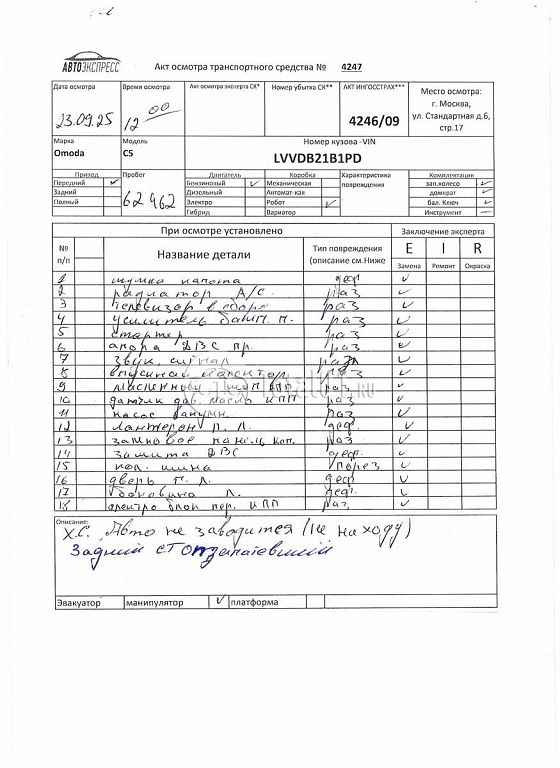 АВТОЭКСПРЕСС
Акт осмотра транспортного средства № 4247
Дата осмотра Время осмотра Акт осмотра эксперта СК* Номер убытка СК** АКТ ИНГОССТРАХ*** Место осмотра:
г. Москва,
23.09.25 12 00 4246/09 ул. Стандартная д.6,
стр.17
Марка Модель Номер кузова -VIN
Omoda C5 LVVDB21B1PD
Привод Пробег Двигатель Коробка Характеристика повреждения Комплектация
Передний ✓ 62962 Бензиновый ✓ Механическая зап.колесо ✓
Задний Дизельный Автомат-кая домкрат ✓
Полный Электро Робот ✓ бал. Ключ ✓
Гибрид Вариатор Инструмент —
При осмотре установлено Заключение эксперта
№ п/п Название детали Тип повреждения (описание см.Ниже E I R
Замена Ремонт Окраска
1 шумка капота деф ✓
2 радиатор А/С. раз ✓
3 телевизор в сборе раз ✓
4 усилитель бамп. п. раз ✓
5 стартер раз ✓
6 опора ДВС пр. раз ✓
7 звук. сигнал раз ✓
8 впускной коллектор раз ✓
9 масленный КПП раз ✓
10 датчик дав. масло КПП раз ✓
11 насос вакуумн. раз ✓
12 Лонжерон П. Л. деф. ✓
13 замковое панель кап. раз ✓
14 защита ДВС деф. ✓
15 кол. шина порез ✓
16 дверь П. Л. деф ✓
17 боковина Л. деф. ✓
18 электро блок пер. КПП раз ✓
Описание:
Х.С. Авто не заводится (не на ходу)
Задний ст
Эвакуатор манипулятор ✓ платформа